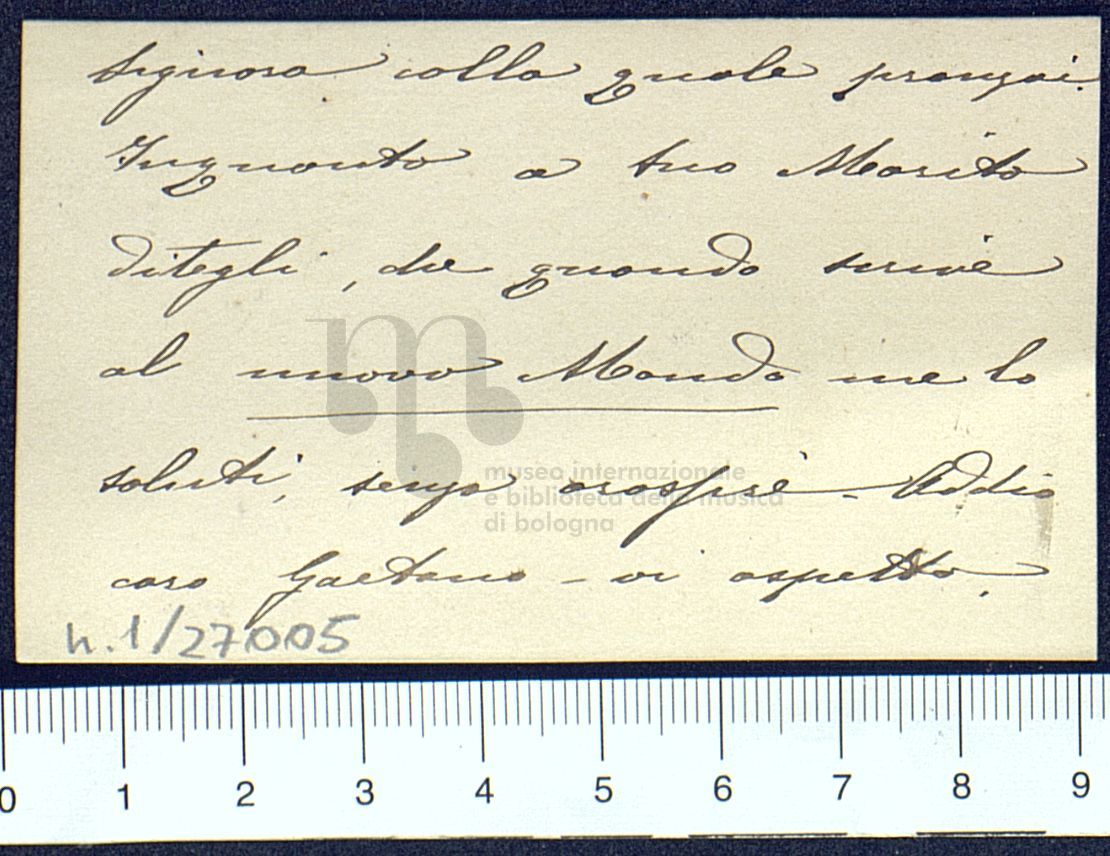 Signora colla quale pranzai.
Inquanto a tuo Marito
ditegli, che quando scrive
al nuovo Mondo me lo
saluti, senza arrossire - Addio
caro Gaetano - vi aspetto.
n.1/27005
museo internazionale
e biblioteca della musica
di bologna
0 1 2 3 4 5 6 7 8 9